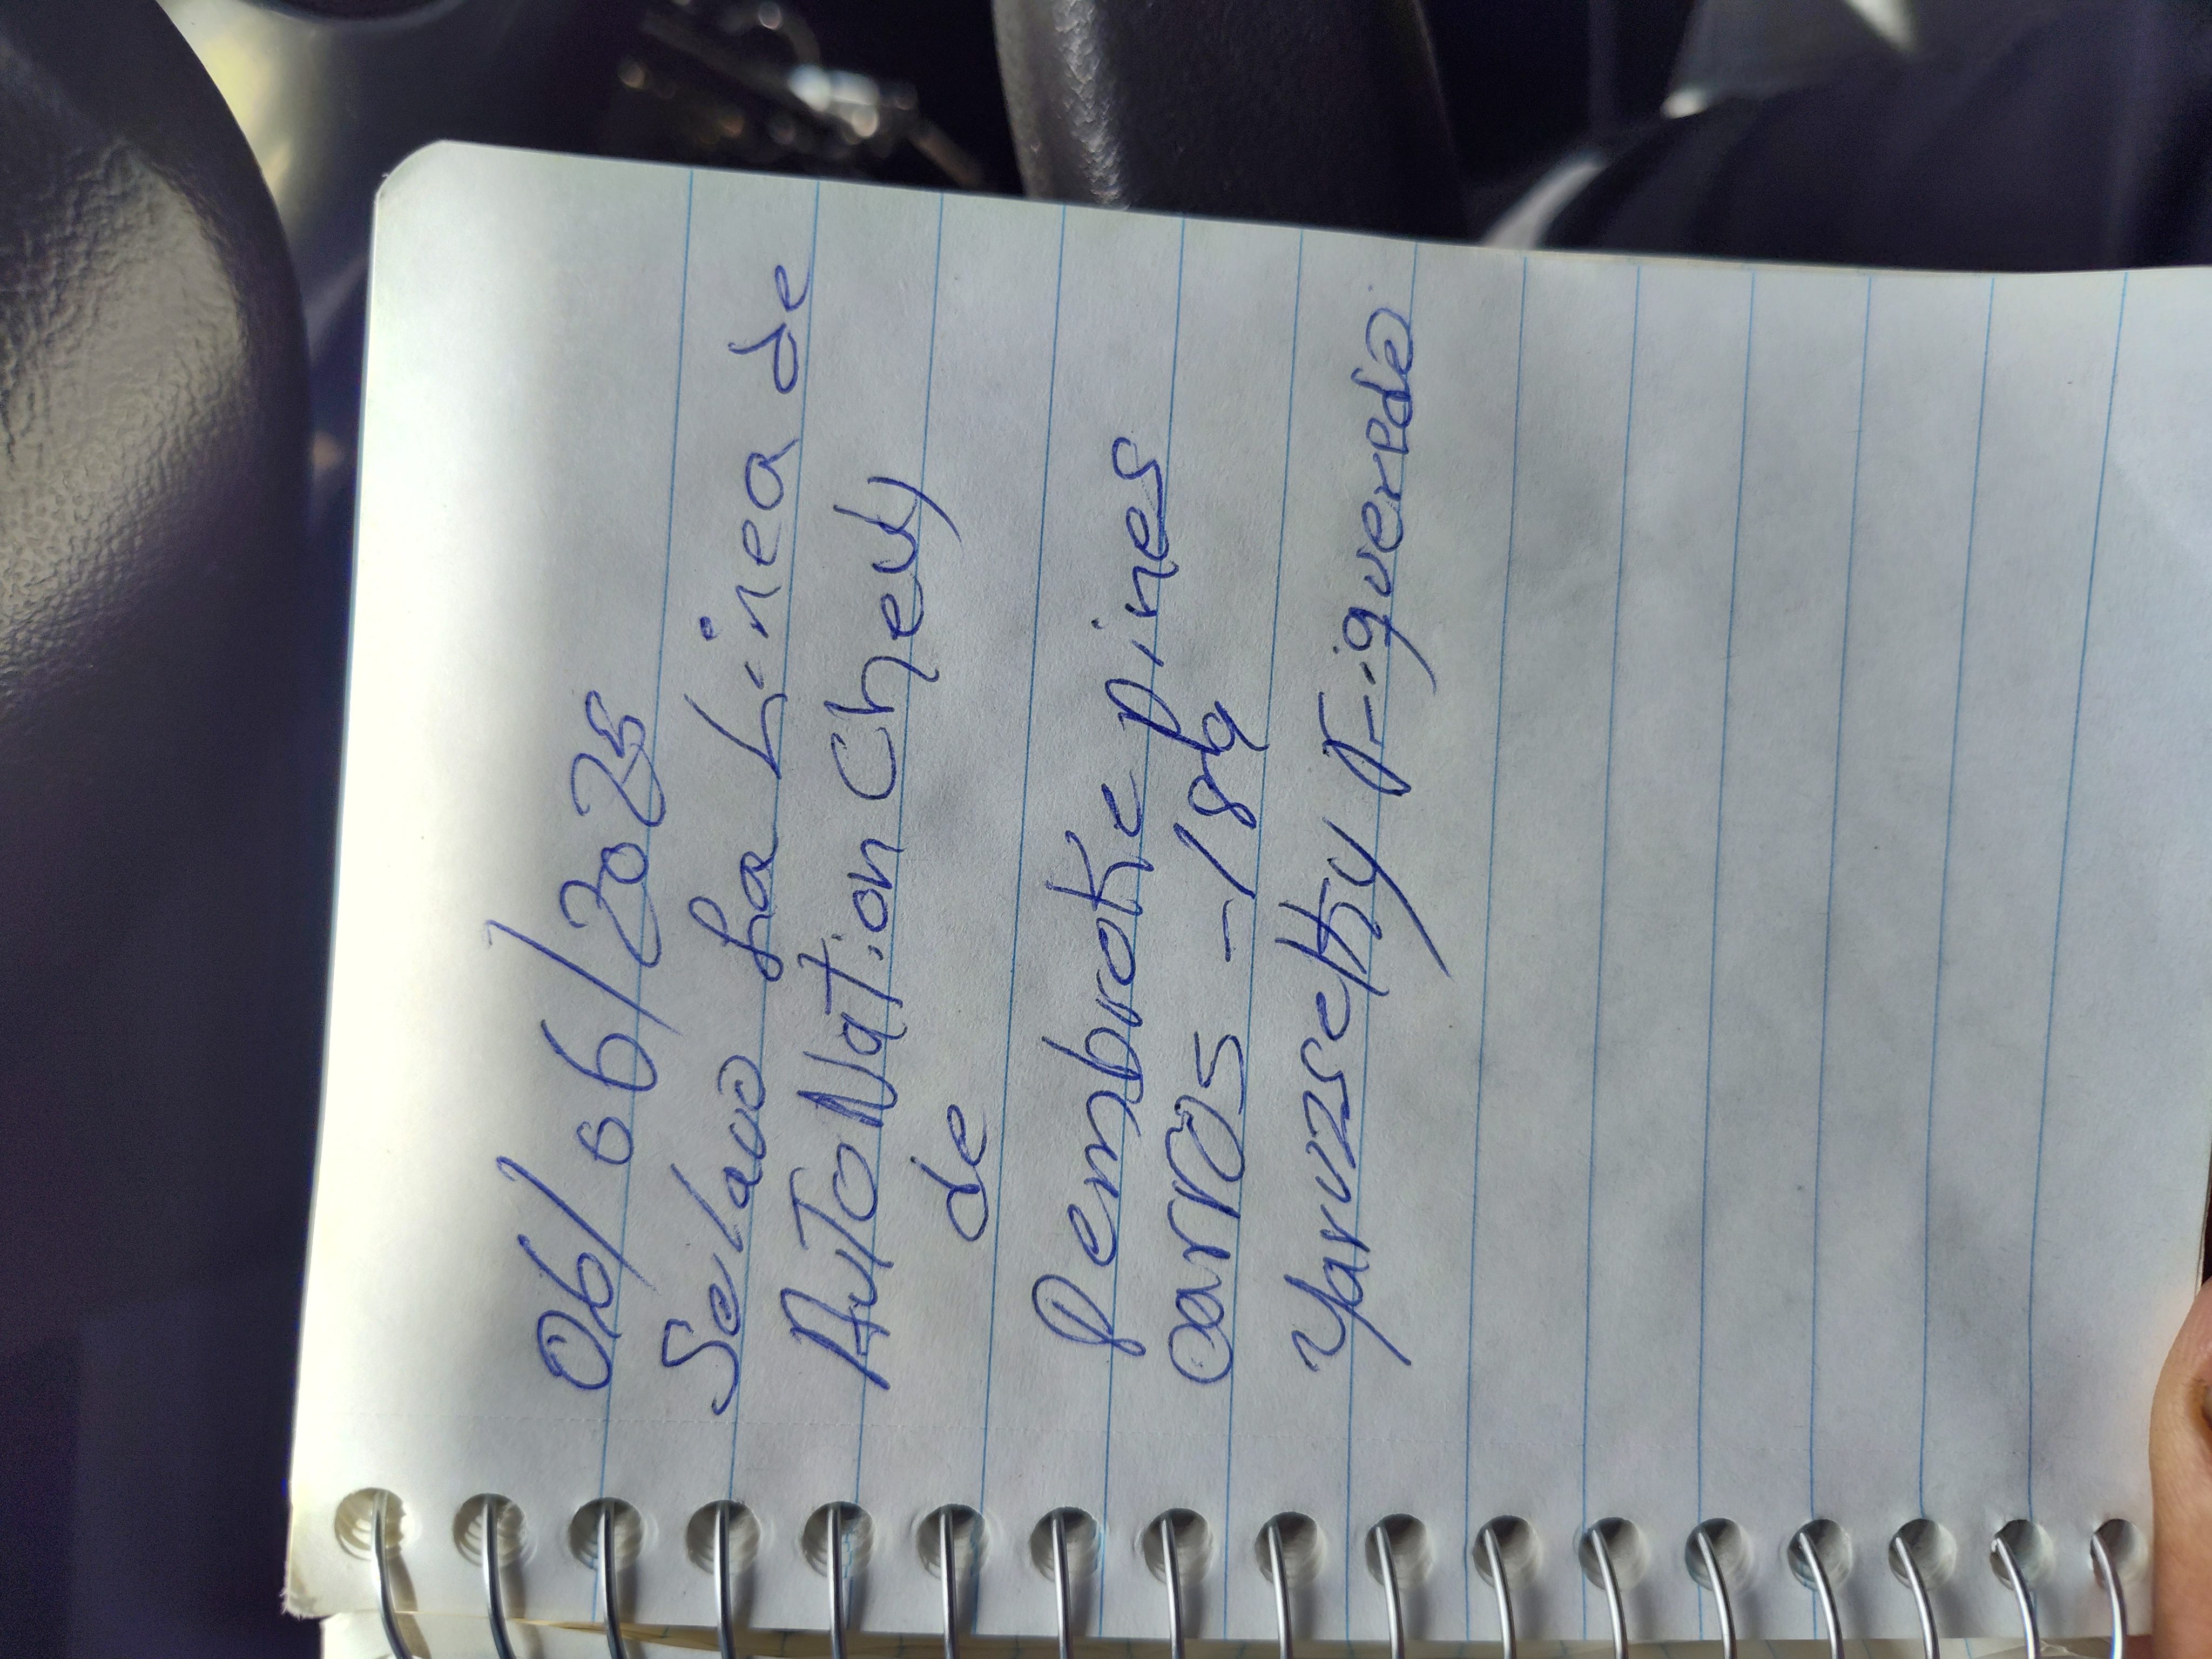 06/06/2025
Se lavo La Linea de
AuToNation Chevy
de
Pembroke pines
carros - 189
Yaruzsethy Figueredo